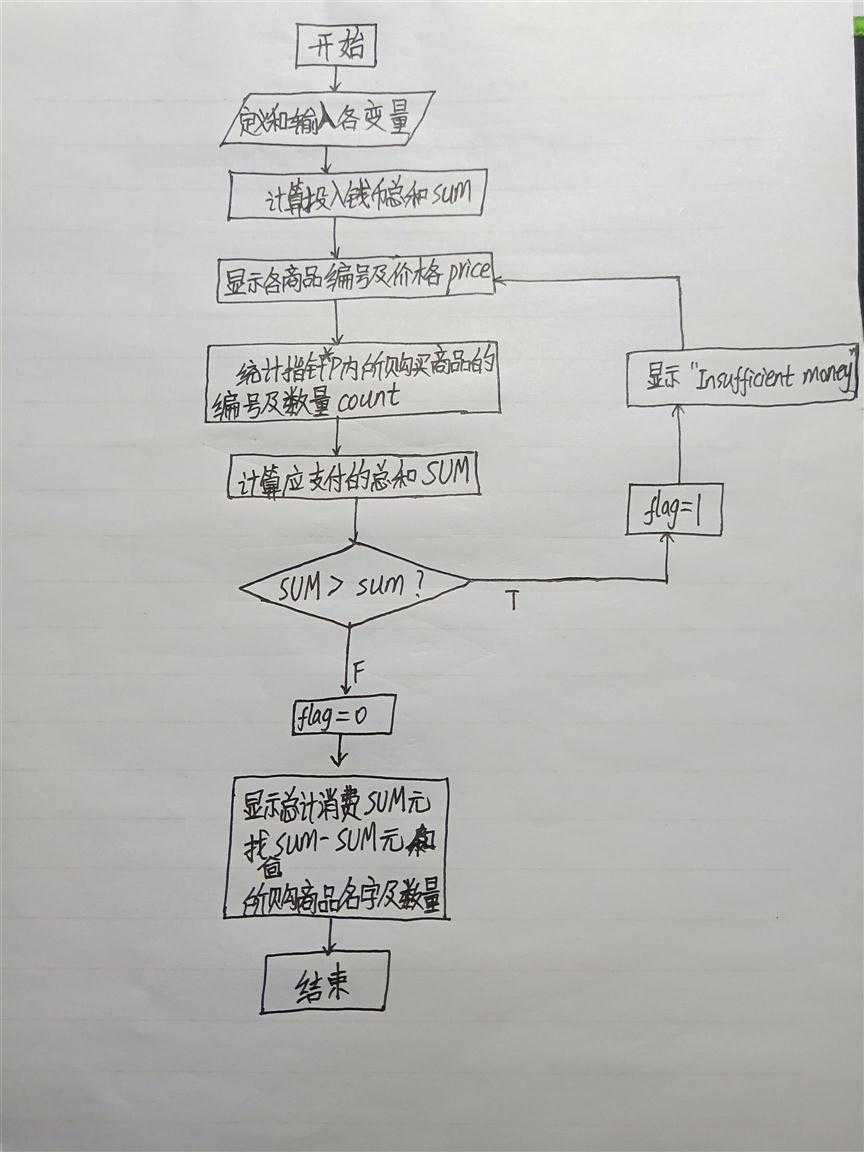 开始
定义和输入各变量
计算投入钱币总和sum
显示各商品编号及价格price
统计指针*P内所购买商品的
编号及数量count
计算应支付的总和SUM
SUM> sum?
T
flag=1
显示"Insufficient money"
F
flag=0
显示总计消费SUM元
找sum-SUM元
所购商品名字及数量
结束